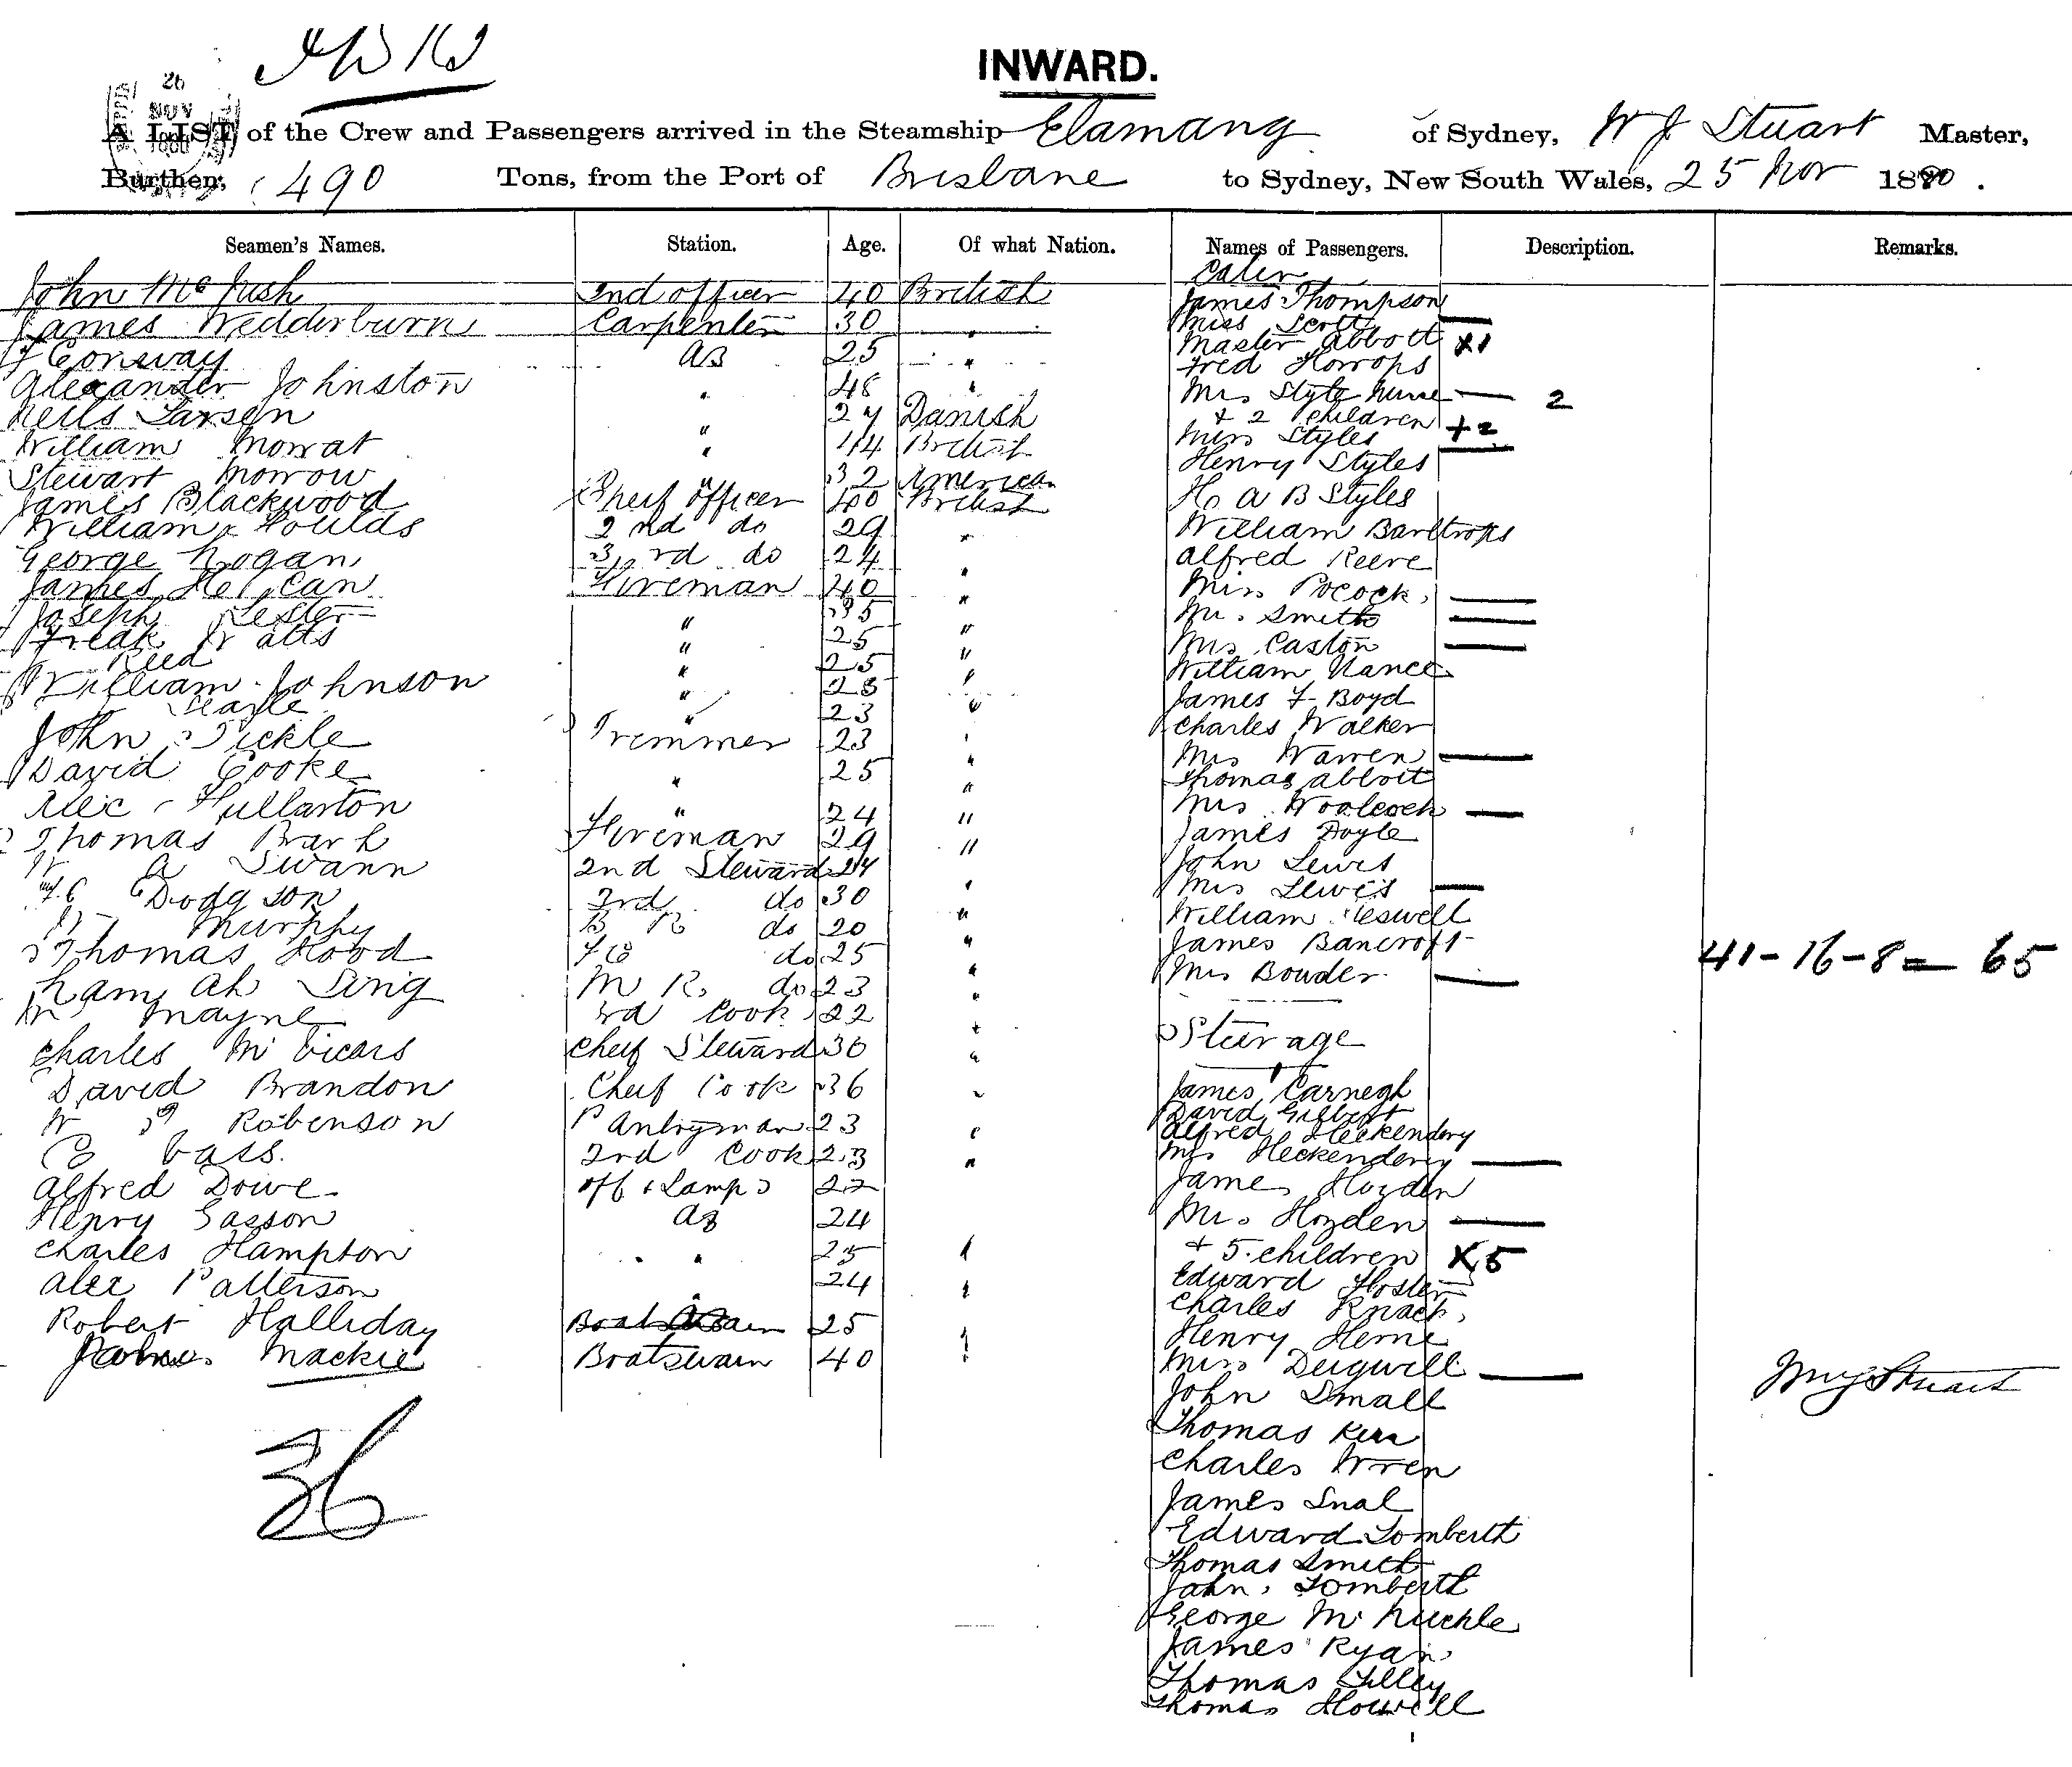 26
NOV
INWARD.
A LIST of the Crew and Passengers arrived in the Steamship Elamang of Sydney, W J Stuart Master,
Burthen, 490 Tons, from the Port of Brisbane to Sydney, New South Wales, 25 Nov 1880.
Seamen's Names. Station. Age. Of what Nation. Names of Passengers. Description. Remarks.
John Mc 2nd officer 40 British
James Wedderburn Carpenter 30 "
Conway AB 25 "
Alexander Johnston " 48 "
Neils Larsen " 27 Danish
William Mowat " 44 British
Stewart Morrow " 32 American
James Blackwood Cheif Officer 40 British
William Foulds 2nd do 29 "
George Hogan 3rd do 24 "
James Fireman 40 "
Joseph Lester " 35 "
Watts " 25 "
Reed " 25 "
William Johnson " 28 "
Searle " 23 "
John Tickle Trimmer 23 "
David Cooke " 25 "
Alec Fullarton " 24 "
Thomas Fireman 29 "
W A Swann 2nd Steward 24 "
Dodgson 3rd do 30 "
Murphy B R do 20 "
Thomas Hood F C do 25 "
Ah Sing M R do 23 "
Mayne 3rd Cook 22 "
Charles McVicars Cheif Steward 36 "
David Brandon Cheif Cook 36 "
W Robenson Pantryman 23 "
C Cass 2rd Cook 23 "
Alfred Dowe off & Lamps 22
Henry Sasson AB 24
Charles Hampton " 25
Alex Patterson " 24
Robert Halliday 25
Mackie Boatswain 40
36
James Thompson
Miss Scott
Master Abbott X1
Fred Horrops
Mrs Style nurse 2
+ 2 children +2
Miss Styles
Henry Styles
H A B Styles
William Bartrops
Alfred Reeve
Miss Pocock
Mrs. Smith
Mrs Caston
William Nance
James F Boyd
Charles Walker
Mrs Warren
Thomas Abbott
Mrs Woolcock
James Doyle
John Lewis
Mrs Lewis
William
James Bancroft
Mrs Bowder
41-16-8 = 65
Steerage
James Carnegh
David Gilbert
Alfred Heckendery
Mrs Heckendery
James Hozden
Mrs. Hozden
+ 5 children X5
Edward Foster
Charles Knach
Henry Herne
Miss Dugwell
John Small
Thomas Kerr
Charles Wren
James Snal
Edward Lomberth
Thomas Smith
John Lomberth
George McNuckle
James Ryan
Thomas Lilley
Thomas Howell
Wm J Stuart